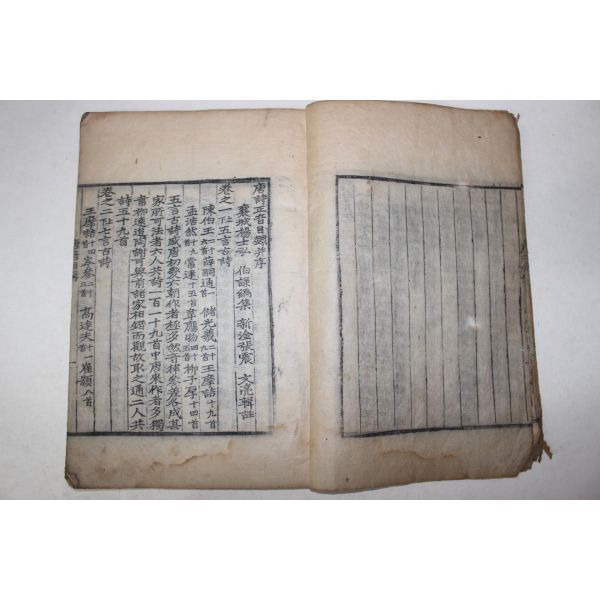 唐詩正音目録并序
襄城楊士弘 伯謙編集 新淦張震 文亮輯註
卷之一 五言古詩
陳伯玉 薛嗣通一 儲光羲二首 王摩詰十九首
孟浩然 常建十五首 韋應物 柳子厚十四首
五言古詩盛唐初變六朝作者極多然音律參差各成其
家所可法者六人共詩一百一十九首中唐來作者多獨
韋柳遠追陶謝可與前諸家相錯而觀故取之通二人共
詩五十九首
卷之二 七言古詩
王摩詰十四首 岑參 高達夫 崔顥八首